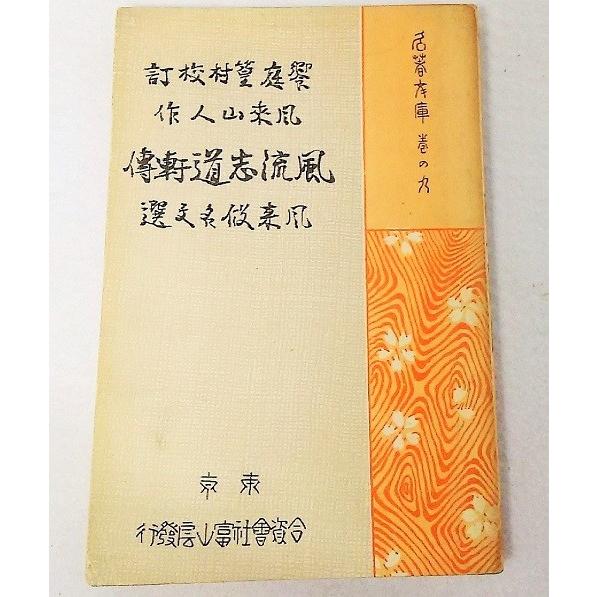 名著文庫 巻の九
饗庭篁村校訂
風来山人作
風流志道軒傳
風来假名文選
東京
合資會社富山房發行